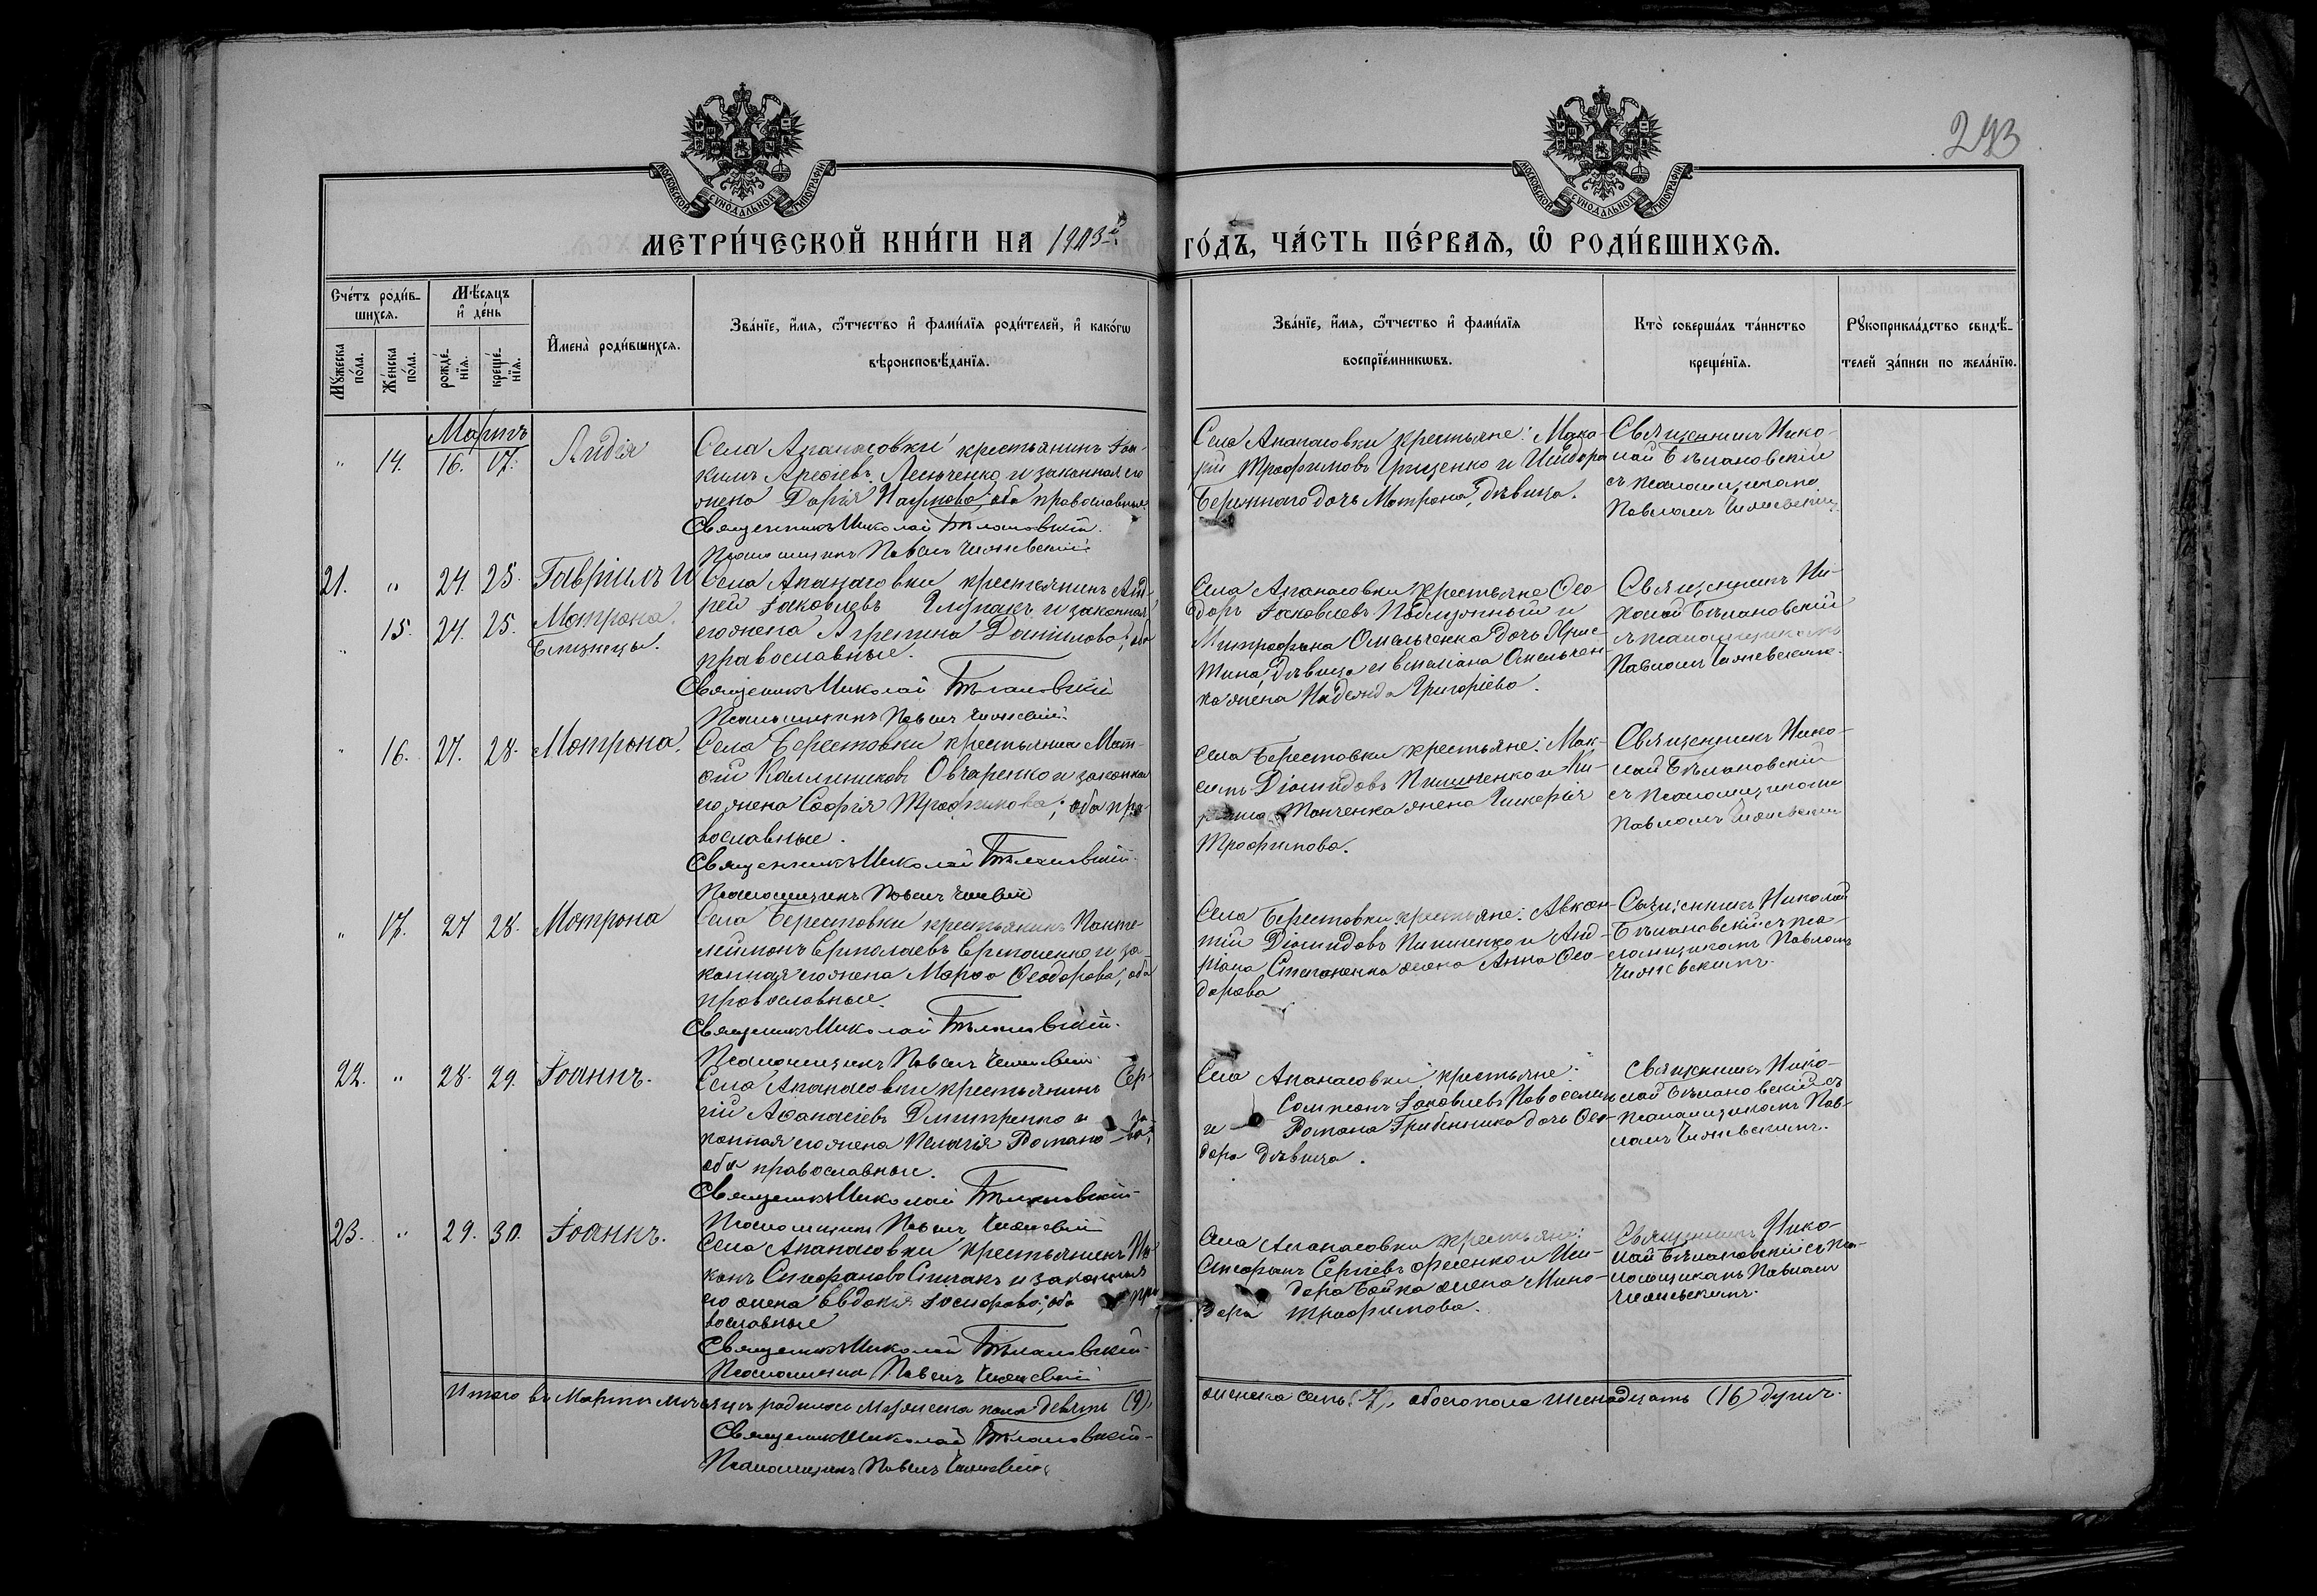 293
МОСКОВСКОЙ СѴНОДАЛЬНОЙ ТИПОГРАФІИ
МОСКОВСКОЙ СѴНОДАЛЬНОЙ ТИПОГРАФІИ
МЕТРИ́ЧЕСКОЙ КНИ́ГИ НА 1903 й ГО́ДЪ, ЧА́СТЬ ПЕ́РВАѦ, Ѡ РОДИ́ВШИХСѦ.
Сче́тъ роди́в-
шихсѧ.
Мꙋжеска по́ла.
Же́нска по́ла.
Мѣ́сѧцъ и де́нь
рожде́-нїѧ.
креще́-нїѧ.
И҆мена̀ роди́вшихсѧ.
Зва́нїе, и҆́мѧ, ѻ҆́тчество и҆ фами́лїѧ роди́телей, и҆ како́гѡ
вѣроисповѣ́данїѧ.
Зва́нїе, и҆́мѧ, ѻ҆́тчество и҆ фами́лїѧ
воспрїе́мникѡвъ.
Кто̀ соверша́лъ та́инство
креще́нїѧ.
Рꙋкоприкла́дство свидѣ́-
телей за́писи по жела́нїю.
Мартъ
" 14. 16. 17. Лидія
Села Апанасовки крестьянинъ Іоа-
кимъ Арсеніевъ и законная его
жена Дарія Наумова; оба православные.
Священникъ Николай Бѣлановскій.
Псаломщикъ Павелъ
Села Апанасовки крестьяне: Мака-
рій Трофимовъ Грищенко и Исидора
Бережнаго дочь Матрона, дѣвица.
Священникъ Нико-
лай Бѣлановскій
съ псаломщикомъ
Павломъ
21. " 24. 25. Гавріилъ и
" 15. 24. 25. Матрона.
Близнецы.
Села Апанасовки крестьянинъ Анд-
рей Іаковлевъ и законная
его жена Агрепина Даніилова; оба
православные.
Священникъ Николай Бѣлановскій
Псаломщикъ Павелъ
Села Апанасовки крестьяне Ѳео-
доръ Іаковлевъ и
Митрофана Омельченка дочь Хрис-
тина, дѣвица и Емеліана Омельчен-
ка жена Надежда Григоріева.
Священникъ Ни-
колай Бѣлановскій
съ псаломщикомъ
Павломъ
" 16. 27. 28. Матрона.
Села Берестовки крестьянинъ Мат-
ѳій Каллиниковъ Овчаренко и законная
его жена Софія Трофимова; оба пра-
вославные.
Священникъ Николай Бѣлановскій.
Псаломщикъ Павелъ
Села Берестовки крестьяне: Мак-
симъ Діомидовъ Пишненко и
Танченка жена Гликерія
Трофимова.
Священникъ Нико-
лай Бѣлановскій
съ псаломщикомъ
Павломъ
" 17. 27 28. Матрона
Села Берестовки крестьянинъ Панте-
леймонъ Ермолаевъ Ермоленко и за-
конная его жена Марѳа Ѳеодорова; оба
православные.
Священникъ Николай Бѣлановскій.
Псаломщикъ Павелъ
Села Берестовки крестьяне: Авксен-
тій Діомидовъ Пишненко и Анд-
ріана Степаненка жена Анна Ѳео-
дорова
Священникъ Николай
Бѣлановскій съ пса-
ломщикомъ Павломъ
22. " 28. 29. Іоаннъ.
Села Апанасовки крестьянинъ Сер-
гій Аѳанасіевъ Дмитренко и за-
конная его жена Пелагія Романова;
оба православные.
Священникъ Николай Бѣлановскій
Псаломщикъ Павелъ
Села Апанасовки крестьяне:
Сампсонъ Іаковлевъ
и Романа Гребенника дочь Ѳео-
дора дѣвица.
Священникъ Нико-
лай Бѣлановскій съ
псаломщикомъ Пав-
ломъ
23. " 29. 30. Іоаннъ.
Села Апанасовки крестьянинъ
Стефановъ и законная
его жена Евдокія; оба пра-
вославные
Священникъ Николай Бѣлановскій
Псаломщикъ Павелъ
Села Апанасовки крестьяне:
Стефанъ Сергіевъ и Иси-
дора Бойка жена Мино-
дора Трофимова.
Священникъ Нико-
лай Бѣлановскій съ пса-
ломщикомъ Павломъ
Итого въ Мартѣ мѣсяцѣ родилось мужеска пола девять (9), женска семь (7), обоего пола шестнадцать (16) душъ.
Священникъ Николай Бѣлановскій
Псаломщикъ Павелъ